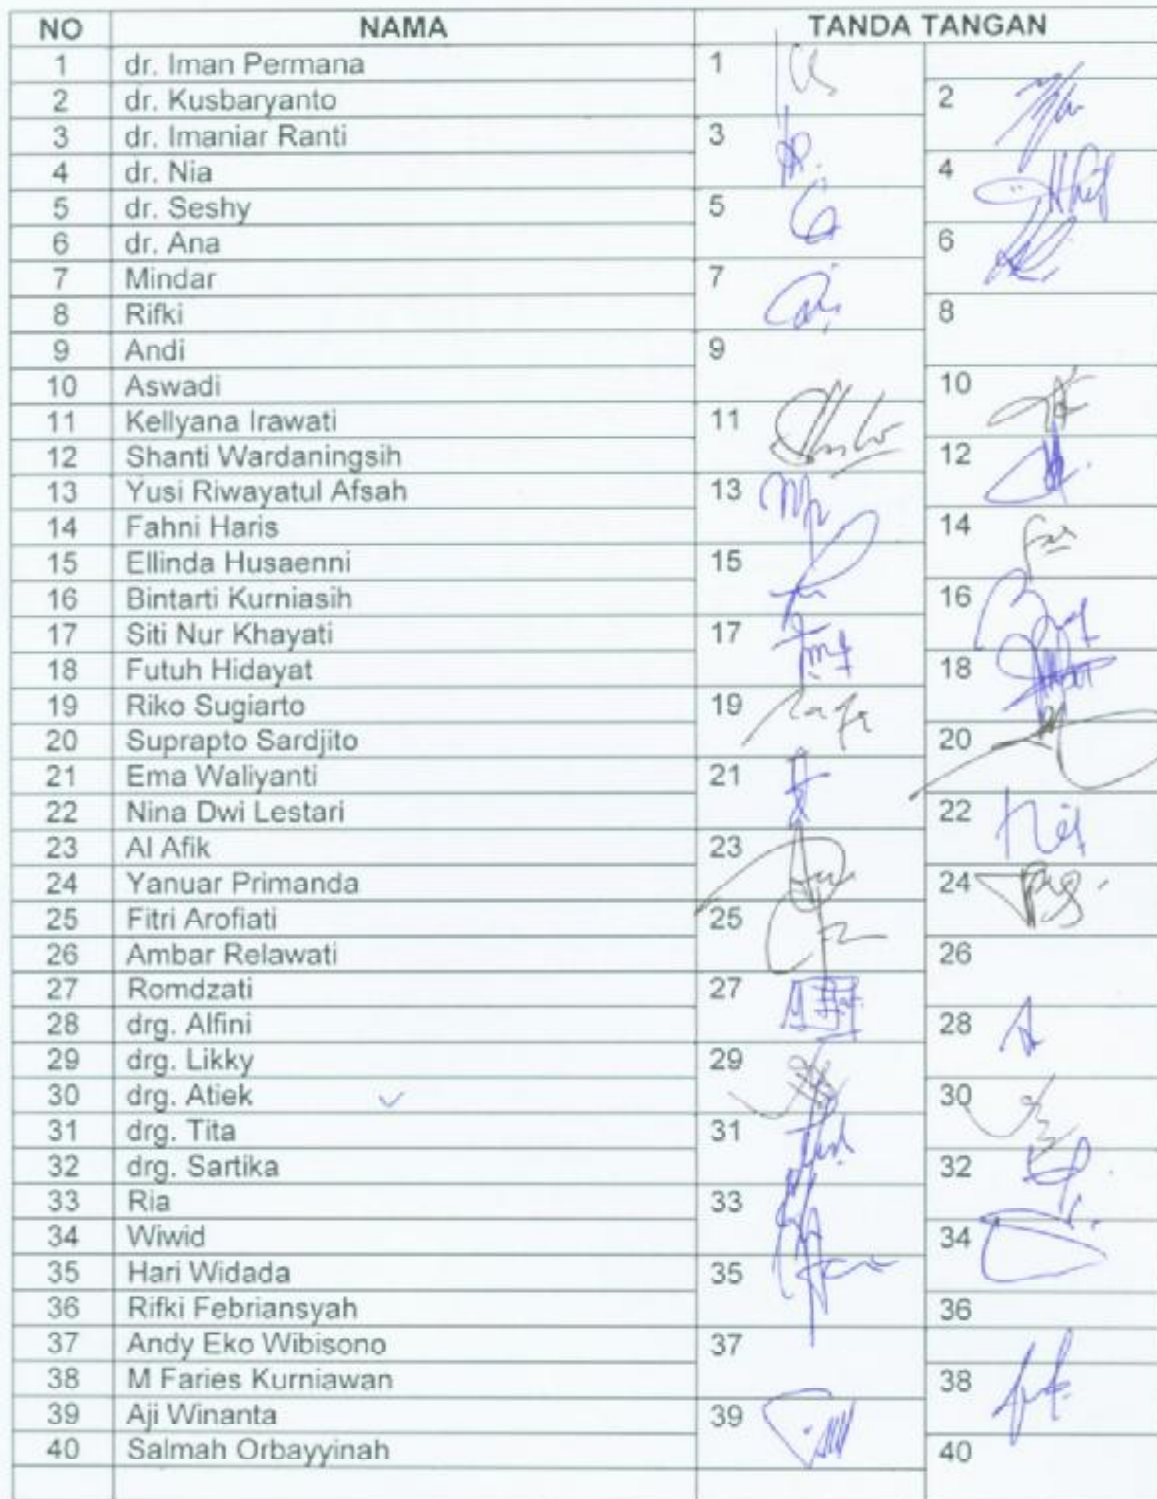 NO NAMA TANDA TANGAN
1 dr. Iman Permana 1
2 dr. Kusbaryanto 2
3 dr. Imaniar Ranti 3
4 dr. Nia 4
5 dr. Seshy 5
6 dr. Ana 6
7 Mindar 7
8 Rifki 8
9 Andi 9
10 Aswadi 10
11 Kellyana Irawati 11
12 Shanti Wardaningsih 12
13 Yusi Riwayatul Afsah 13
14 Fahni Haris 14
15 Ellinda Husaenni 15
16 Bintarti Kurniasih 16
17 Siti Nur Khayati 17
18 Futuh Hidayat 18
19 Riko Sugiarto 19
20 Suprapto Sardjito 20
21 Ema Waliyanti 21
22 Nina Dwi Lestari 22
23 Al Afik 23
24 Yanuar Primanda 24
25 Fitri Arofiati 25
26 Ambar Relawati 26
27 Romdzati 27
28 drg. Alfini 28
29 drg. Likky 29
30 drg. Atiek 30
31 drg. Tita 31
32 drg. Sartika 32
33 Ria 33
34 Wiwid 34
35 Hari Widada 35
36 Rifki Febriansyah 36
37 Andy Eko Wibisono 37
38 M Faries Kurniawan 38
39 Aji Winanta 39
40 Salmah Orbayyinah 40